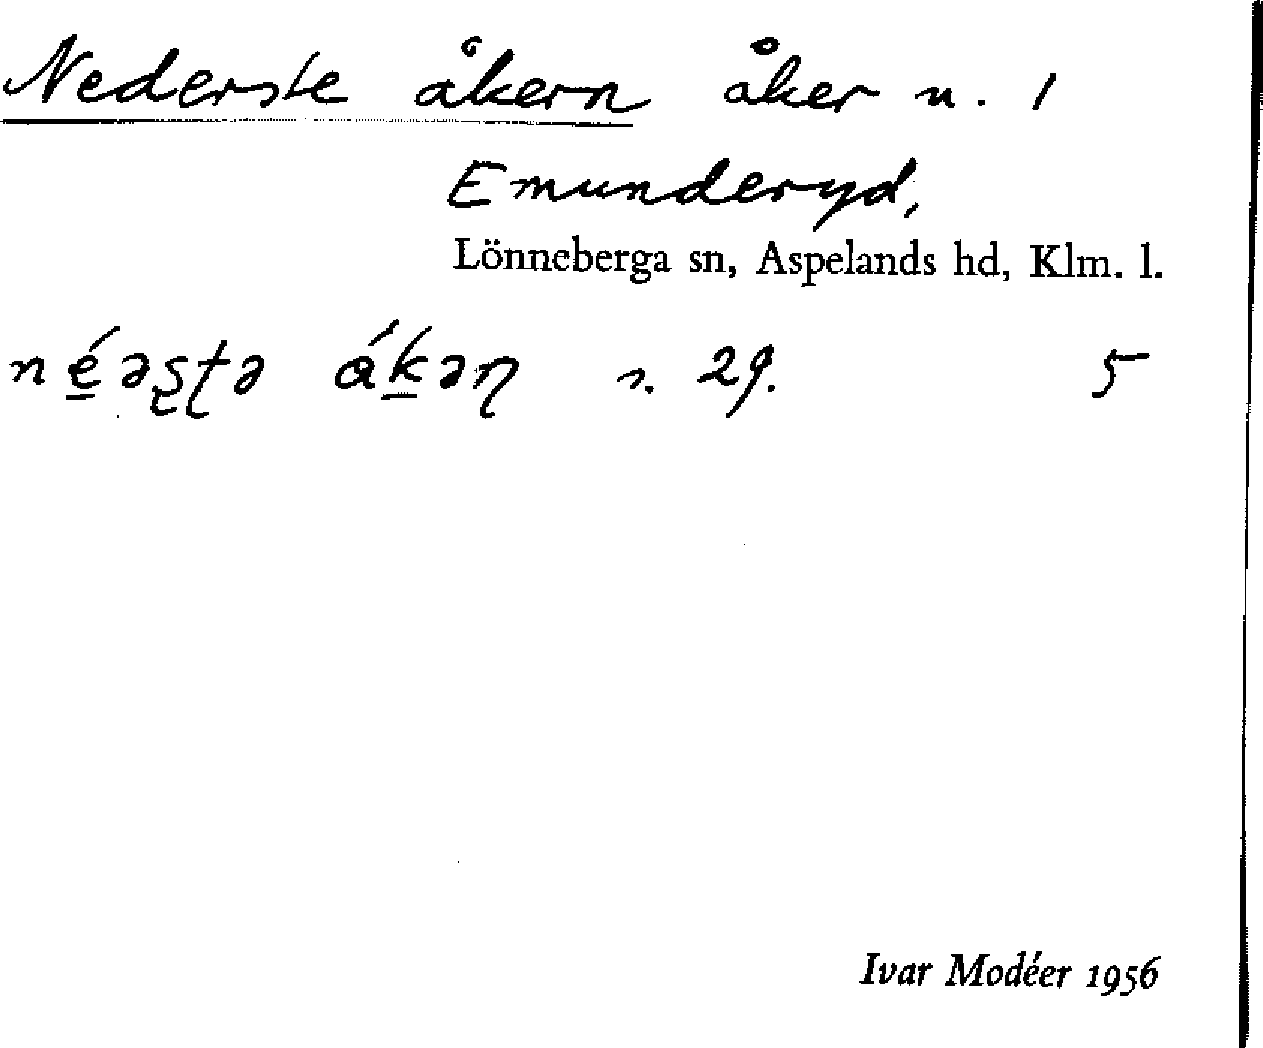 Nederste åkern åker n. 1
Emunderyd,
Lönneberga sn, Aspelands hd, Klm. l.
né̱əʂʈə áḵəɳ s. 29. 5
Ivar Modéer 1956